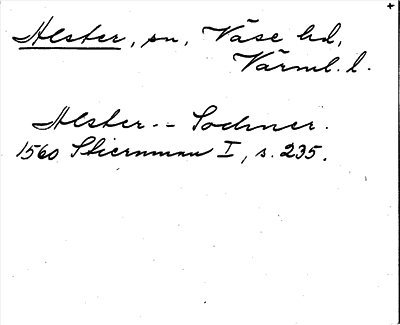 Alster, sn, Väse hd,
Värml. l.
Alster -- Sochner.
1560 Stiernman I, s. 235.